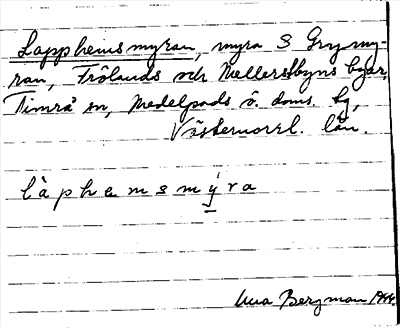 Lappheimsmyran, myra S Grymy-
ran, Frölands och Mellerstbyns byar,
Timrå sn, Medelpads ö. doms. tg,
Västernorrl. län.
làphemsmýra
Bergman 1944.